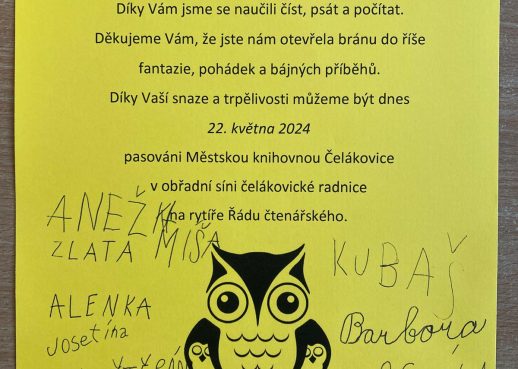 Díky Vám jsme se naučili číst, psát a počítat.
Děkujeme Vám, že jste nám otevřela bránu do říše
fantazie, pohádek a bájných příběhů.
Díky Vaší snaze a trpělivosti můžeme být dnes
22. května 2024
pasováni Městskou knihovnou Čelákovice
v obřadní síni čelákovické radnice
na rytíře Řádu čtenářského.
ANEŽKA
ZLATA MÍŠA
KUBAŠ
ALENKA
Josefína
Barbora